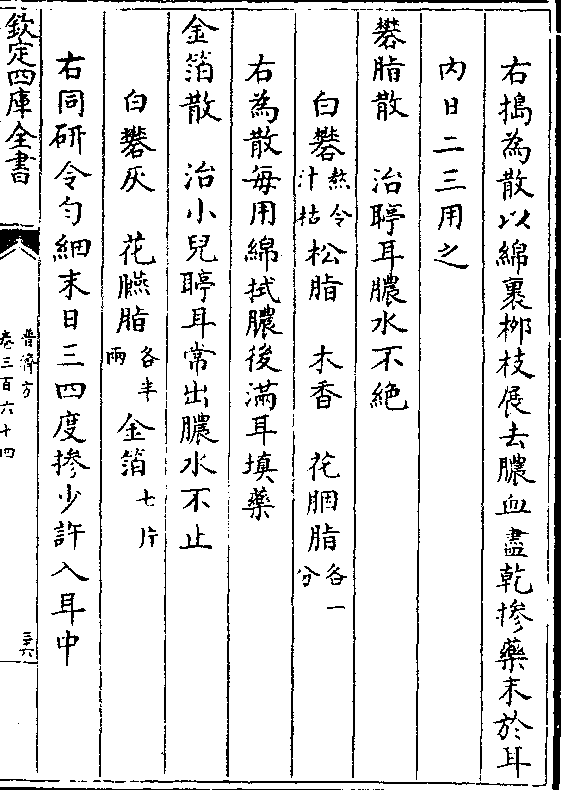 右搗為散以綿裹柳枝展去膿血盡乾摻藥末於耳
內日二三用之
礬脂散　治聤耳膿水不絶
白礬熬令汁枯　松脂　木香　花胭脂各一分
右為散每用綿拭膿後滿耳填藥
金箔散　治小兒聤耳常出膿水不止
白礬灰　花臙脂各半兩　金箔七片
右同研令勻細末日三四度摻少許入耳中
欽定四庫全書
普濟方
卷三百六十四
三六